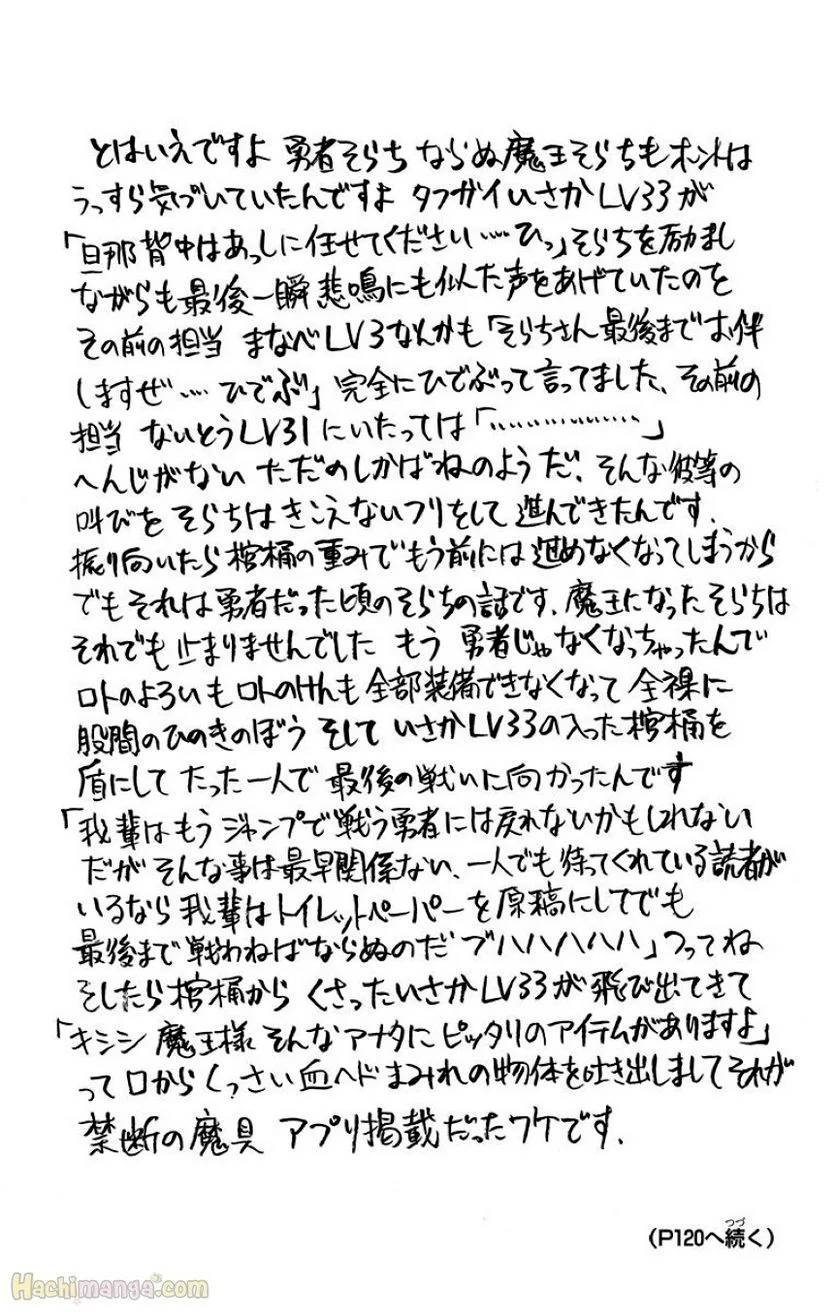 とはいえですよ 勇者そらち ならぬ魔王そらちもホントは
うっすら気づいていたんですよ タフガイいさかLV33が
「旦那背中はあっしに任せてください……ひっ」そらちを励まし
ながらも最後一瞬悲鳴にも似た声をあげていたのを
その前の担当 まなべLV3なんかも「そらちさん最後までお伴
しますぜ…. ひでぶ」完全にひでぶって言ってました、その前の
担当 ないとうLV31にいたっては「………………」
へんじがない ただのしかばねのようだ、そんな彼等の
叫びを そらちはきこえないフリをして 進んできたんです.
振り向いたら棺桶の重みでもう前には進めなくなってしまうから
でもそれは勇者だった頃のそらちの話です、魔王になったそらちは
それでも止まりませんでした もう 勇者じゃなくなっちゃったんで
ロトのよろいもロトのけんも全部装備できなくなって 全裸に
股間のひのきのぼう そして いさかLV33の入った棺桶を
盾にして たった一人で 最後の戦いに向かったんです
「我輩はもうジャンプで戦う勇者には戻れないかもしれない
だが そんな事は最早関係ない、一人でも待ってくれている読者が
いるなら我輩はトイレットペーパーを原稿にしてでも
最後まで戦わねばならぬのだ ブハハハハハ」つってね
そしたら棺桶から くさったいさかLV33が飛び出てきて
「キシシ 魔王様 そんなアナタに ピッタリのアイテムがありますよ」
って口からくっさい血ヘドまみれの物体を吐き出しまして それが
禁断の魔具 アプリ掲載だったワケです.
(P120へ続く)
つづ
Hachimanga.com